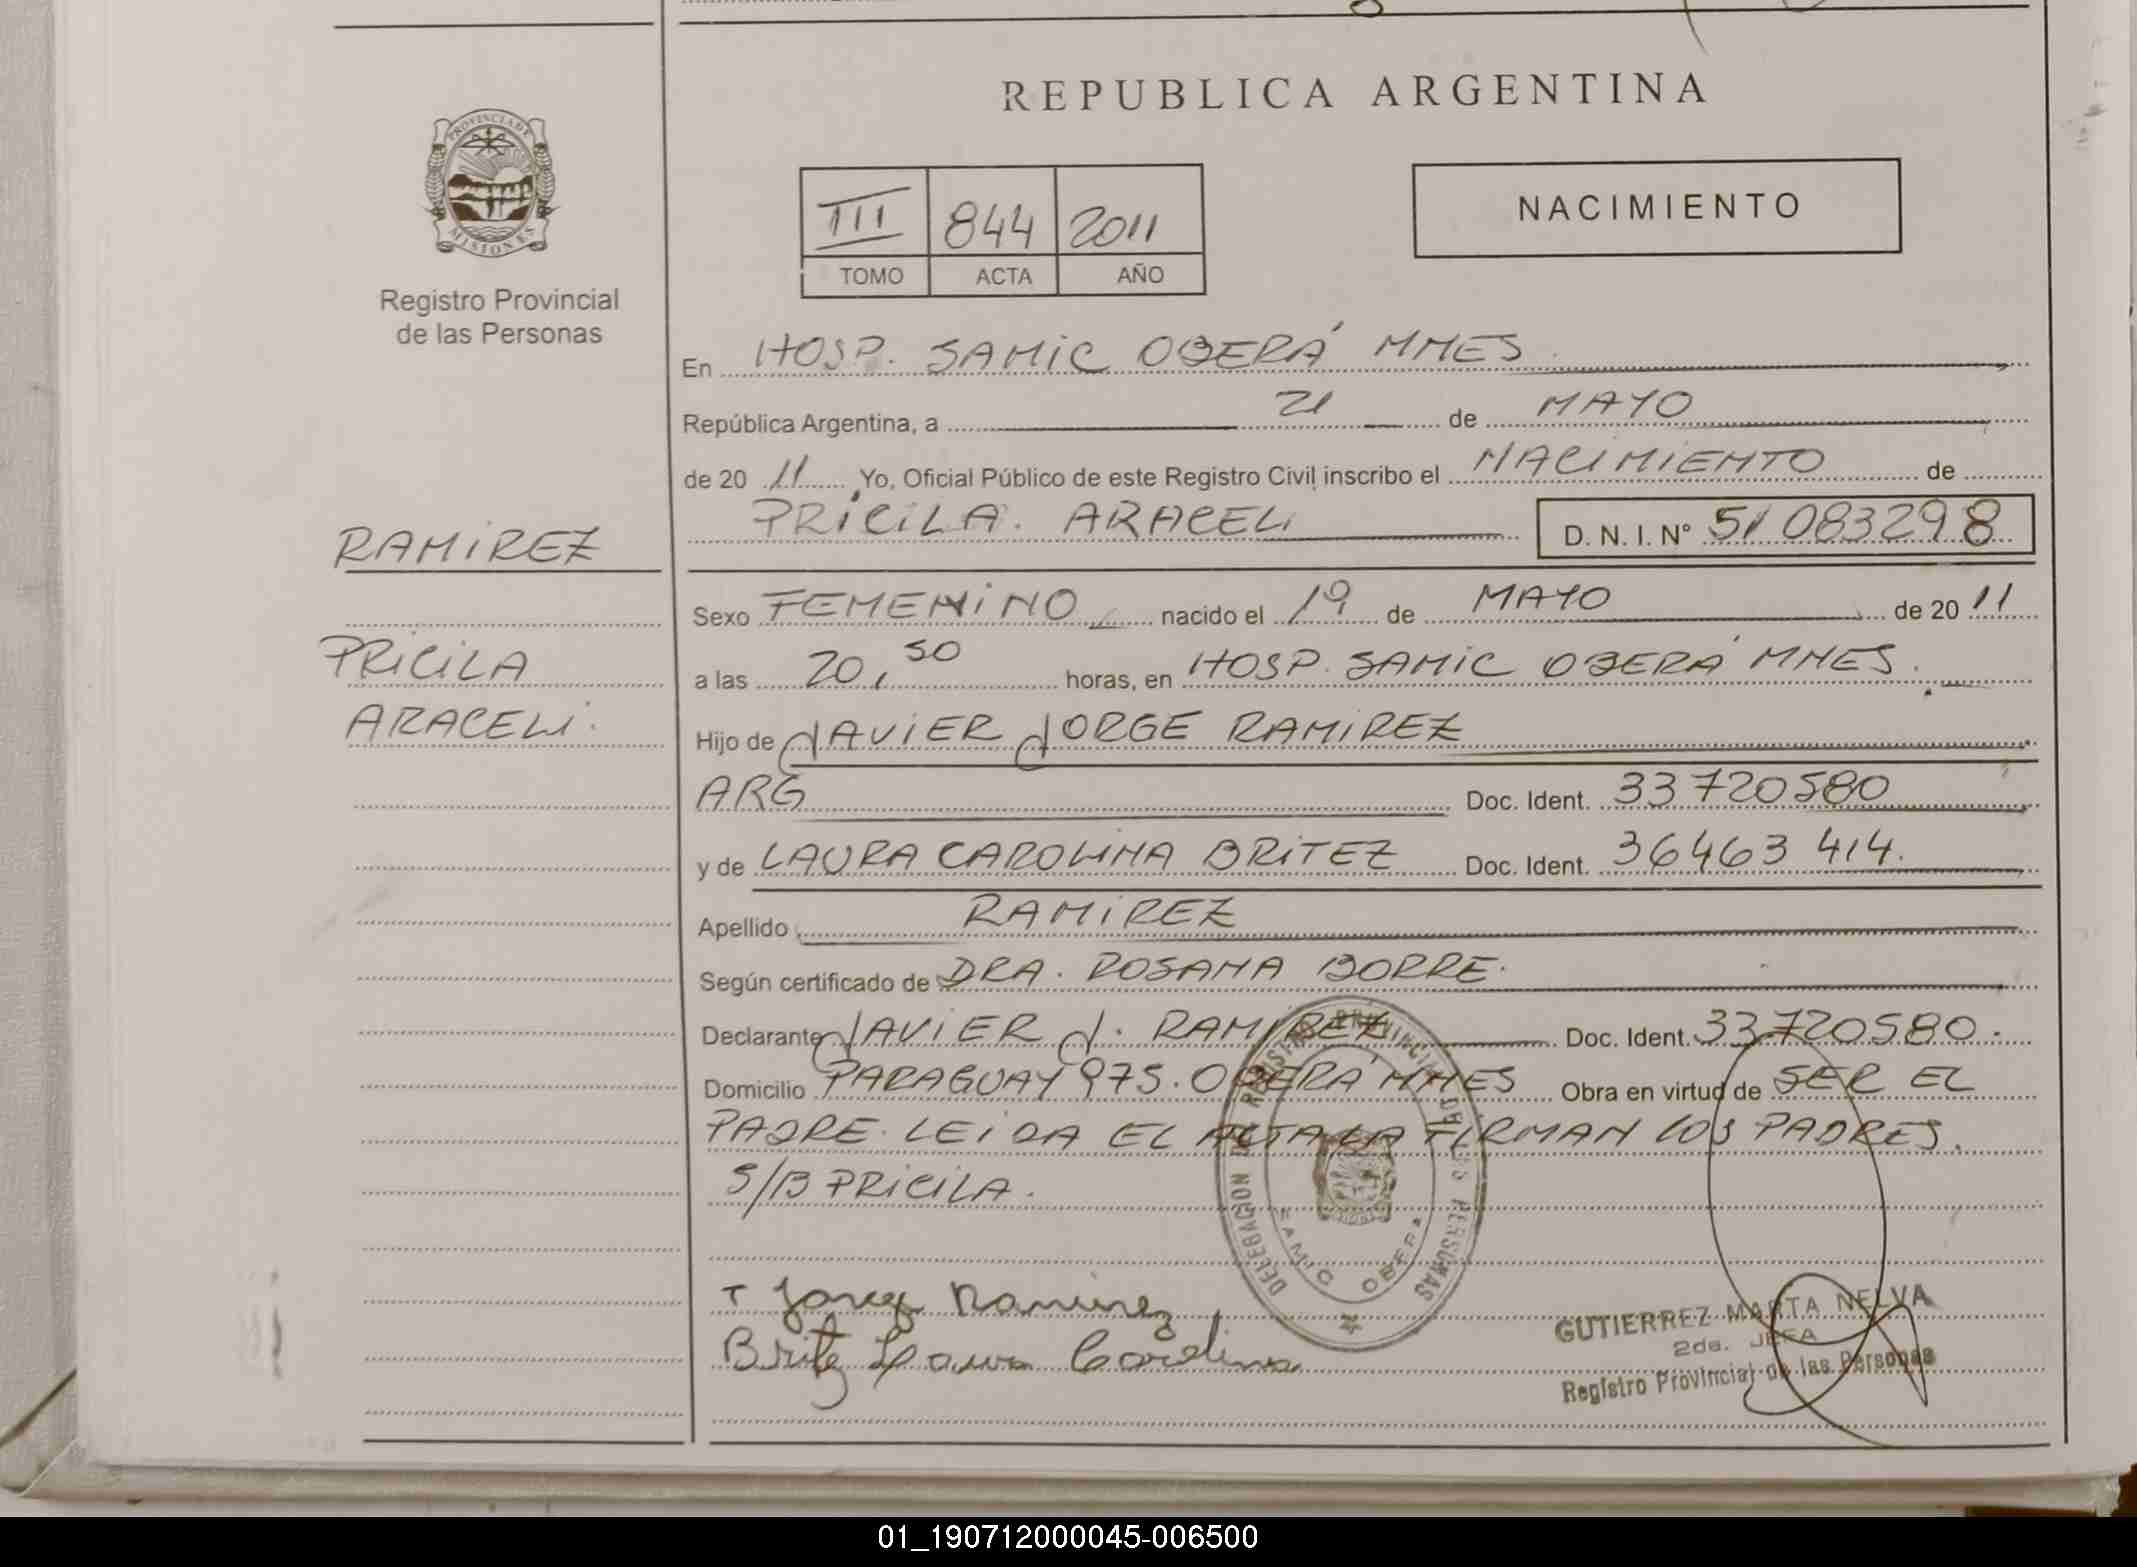 REPUBLICA ARGENTINA
PROVINCIA DE
MISIONES
Registro Provincial
de las Personas
III 844 2011
TOMO ACTA AÑO
NACIMIENTO
En HOSP. SAMIC OBERÁ MNES
República Argentina, a 21 de MAYO
de 20 11 Yo, Oficial Público de este Registro Civil inscribo el NACIMIENTO de
PRICILA ARACELI D. N. I. N° 51083298
RAMIREZ
PRICILA
ARACELI.
Sexo FEMENINO nacido el 19 de MAYO de 20 11
a las 20,50 horas, en HOSP. SAMIC OBERÁ MNES.
Hijo de JAVIER JORGE RAMIREZ
ARG Doc. Ident. 33720580
y de LAURA CAROLINA BRITEZ Doc. Ident. 36463414.
Apellido RAMIREZ
Según certificado de DRA. ROSANA BORRE.
Declarante JAVIER J. RAMIREZ Doc. Ident. 33720580.
Domicilio PARAGUAY 975. OBERÁ MNES Obra en virtud de SER EL
PADRE. LEIDA EL ACTA LA FIRMAN LOS PADRES.
S/B PRICILA.
DELEGACION DE REGISTRO PROVINCIAL DE LAS PERSONAS
SAMIC OBERA
Ramirez
Britez Laura Carolina
GUTIERREZ MARTA NELVA
2da. JEFA
Registro Provincial de las Personas
01_190712000045-006500